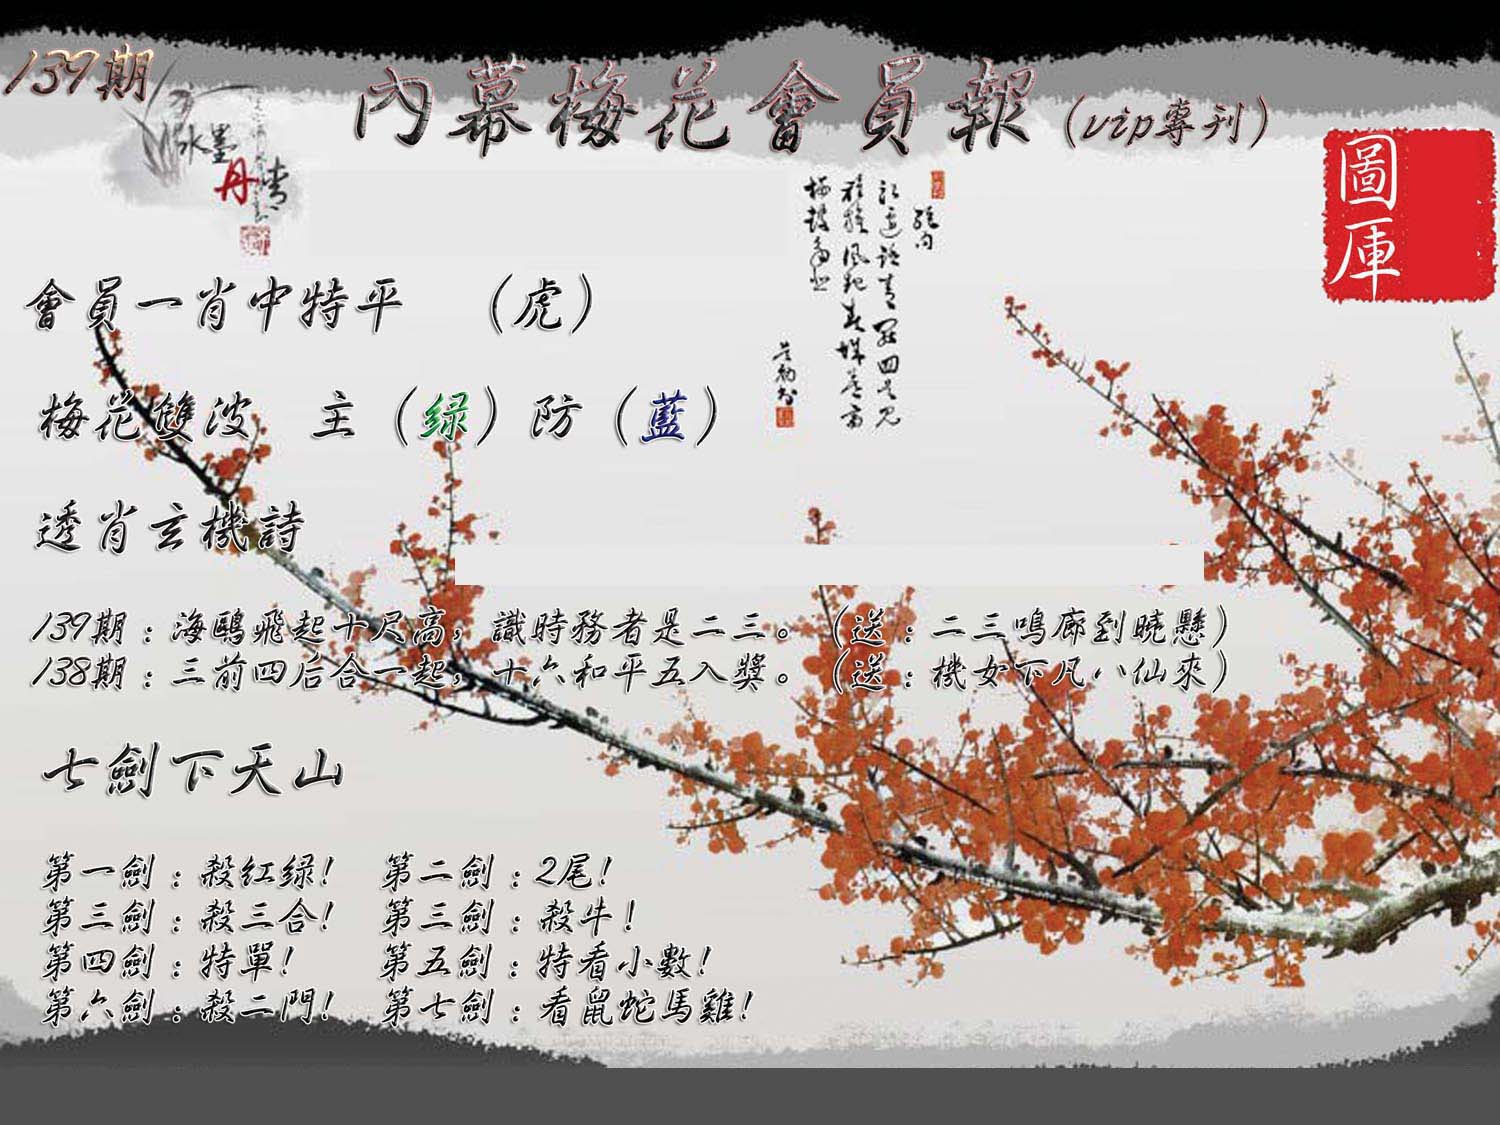 139期
內幕梅花會員報(vip專刊)
水墨
丹青
圖
庫
會員一肖中特平 （虎）
梅花雙波 主（绿）防（藍）
透肖玄機詩
139期：海鷗飛起十尺高，識時務者是二三。（送：二三鳴廊到曉懸）
138期：三前四后合一起，十六和平五入獎。（送：機女下凡八仙來）
七劍下天山
第一劍：殺红绿! 第二劍：2尾!
第三劍：殺三合! 第三劍：殺牛!
第四劍：特單! 第五劍：特看小數!
第六劍：殺二門! 第七劍：看鼠蛇馬雞!